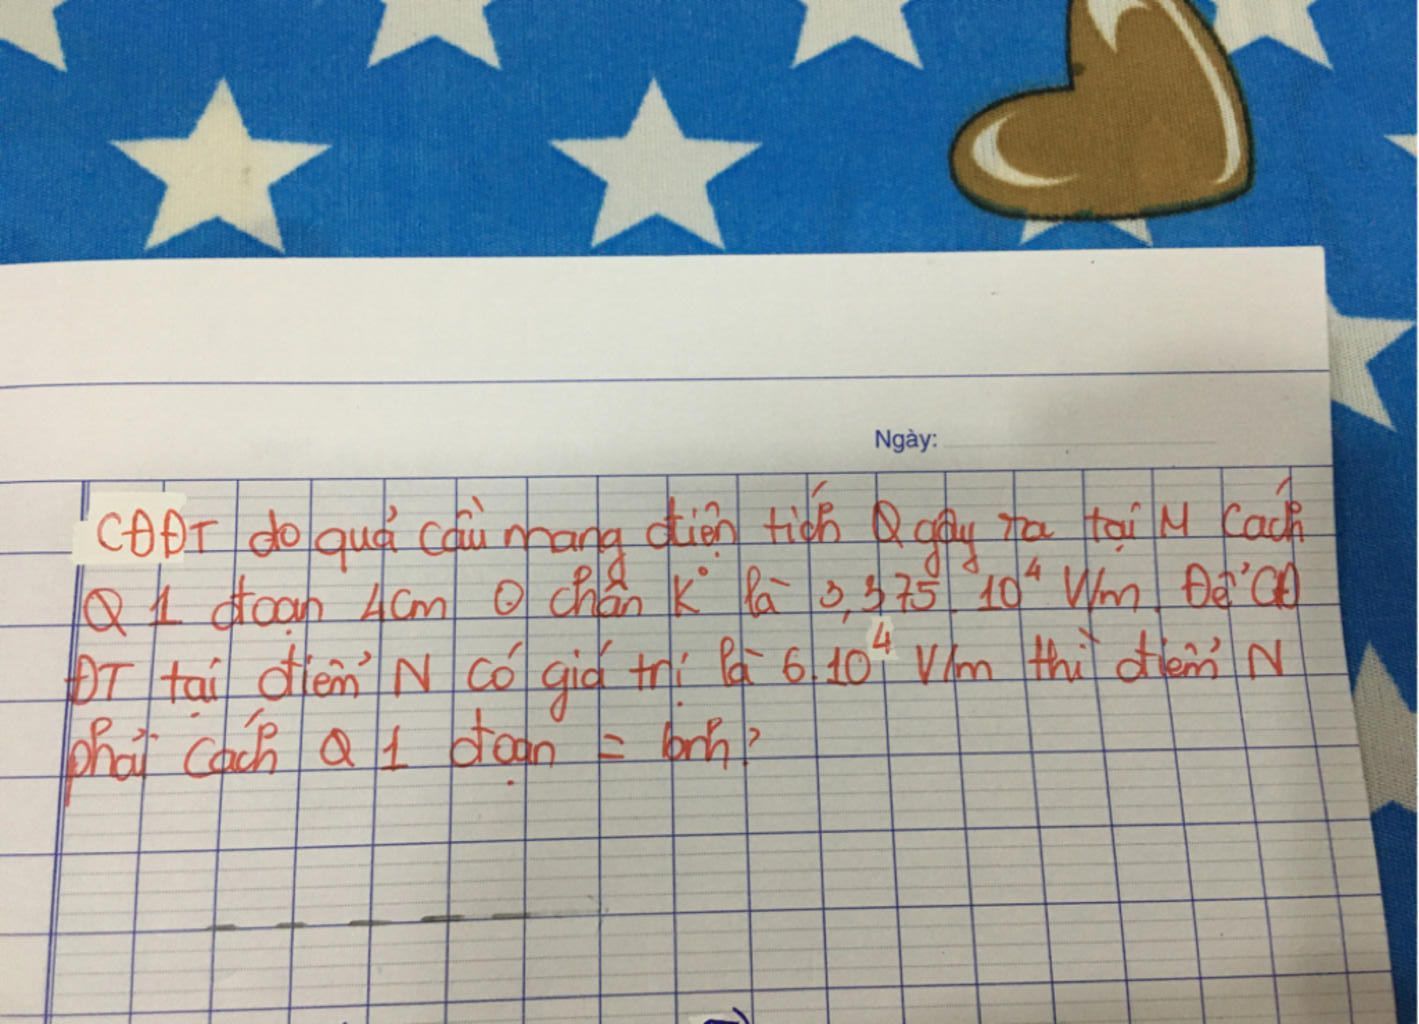 Ngày:
CĐĐT do quả cầu mang điện tích Q gây ra tại M cách
Q 1 đoạn 4cm Ở chân K° là 3,375.10⁴ V/m. Để CĐ
ĐT tại điểm N có giá trị là 6.10⁴ V/m thì điểm N
phải cách Q 1 đoạn = bnh?